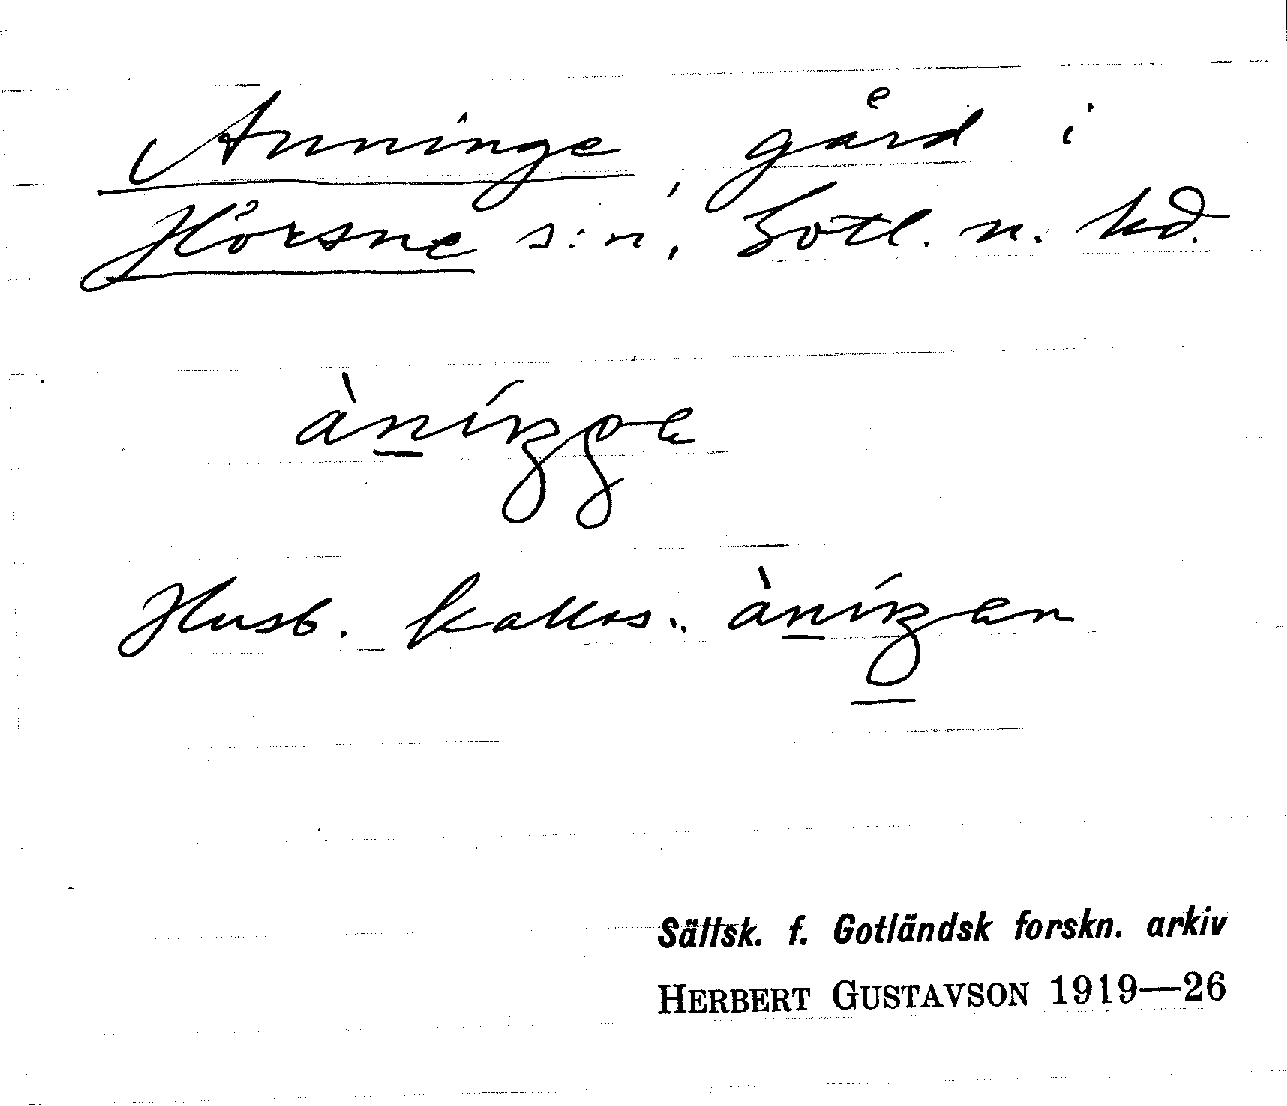 Anninge, gård i
Hörsne s:n, Gotl. n. hd.
àníŋge
Husb. kallas: àníŋen
Sällsk. f. Gotländsk forskn. arkiv
HERBERT GUSTAVSON 1919—26